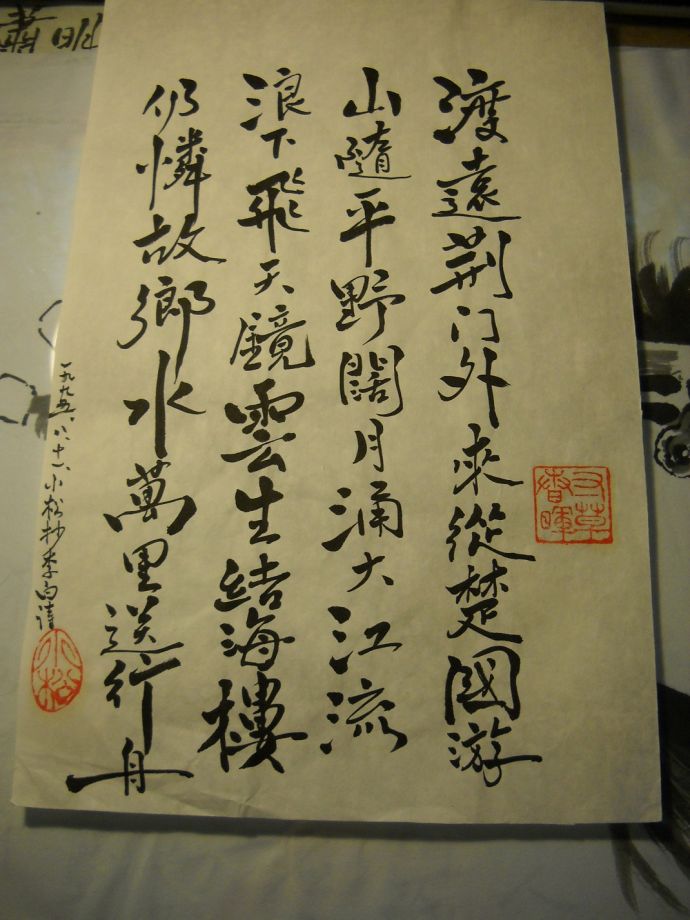 渡遠荆门外來從楚國游
山隨平野闊月涌大江流
浪下飛天鏡雲生結海樓
仍憐故鄉水萬里送行舟
一九九五、八、十一、小松抄李白詩
小松
寸草春暉